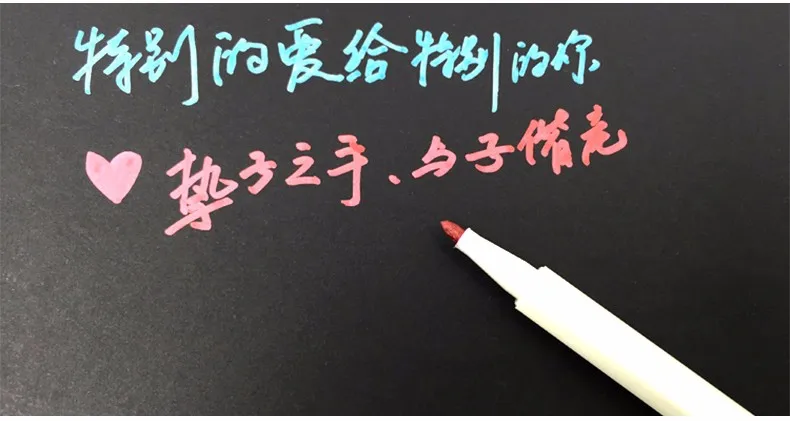 特别的爱给特别的你
挚子之手、与子偕老